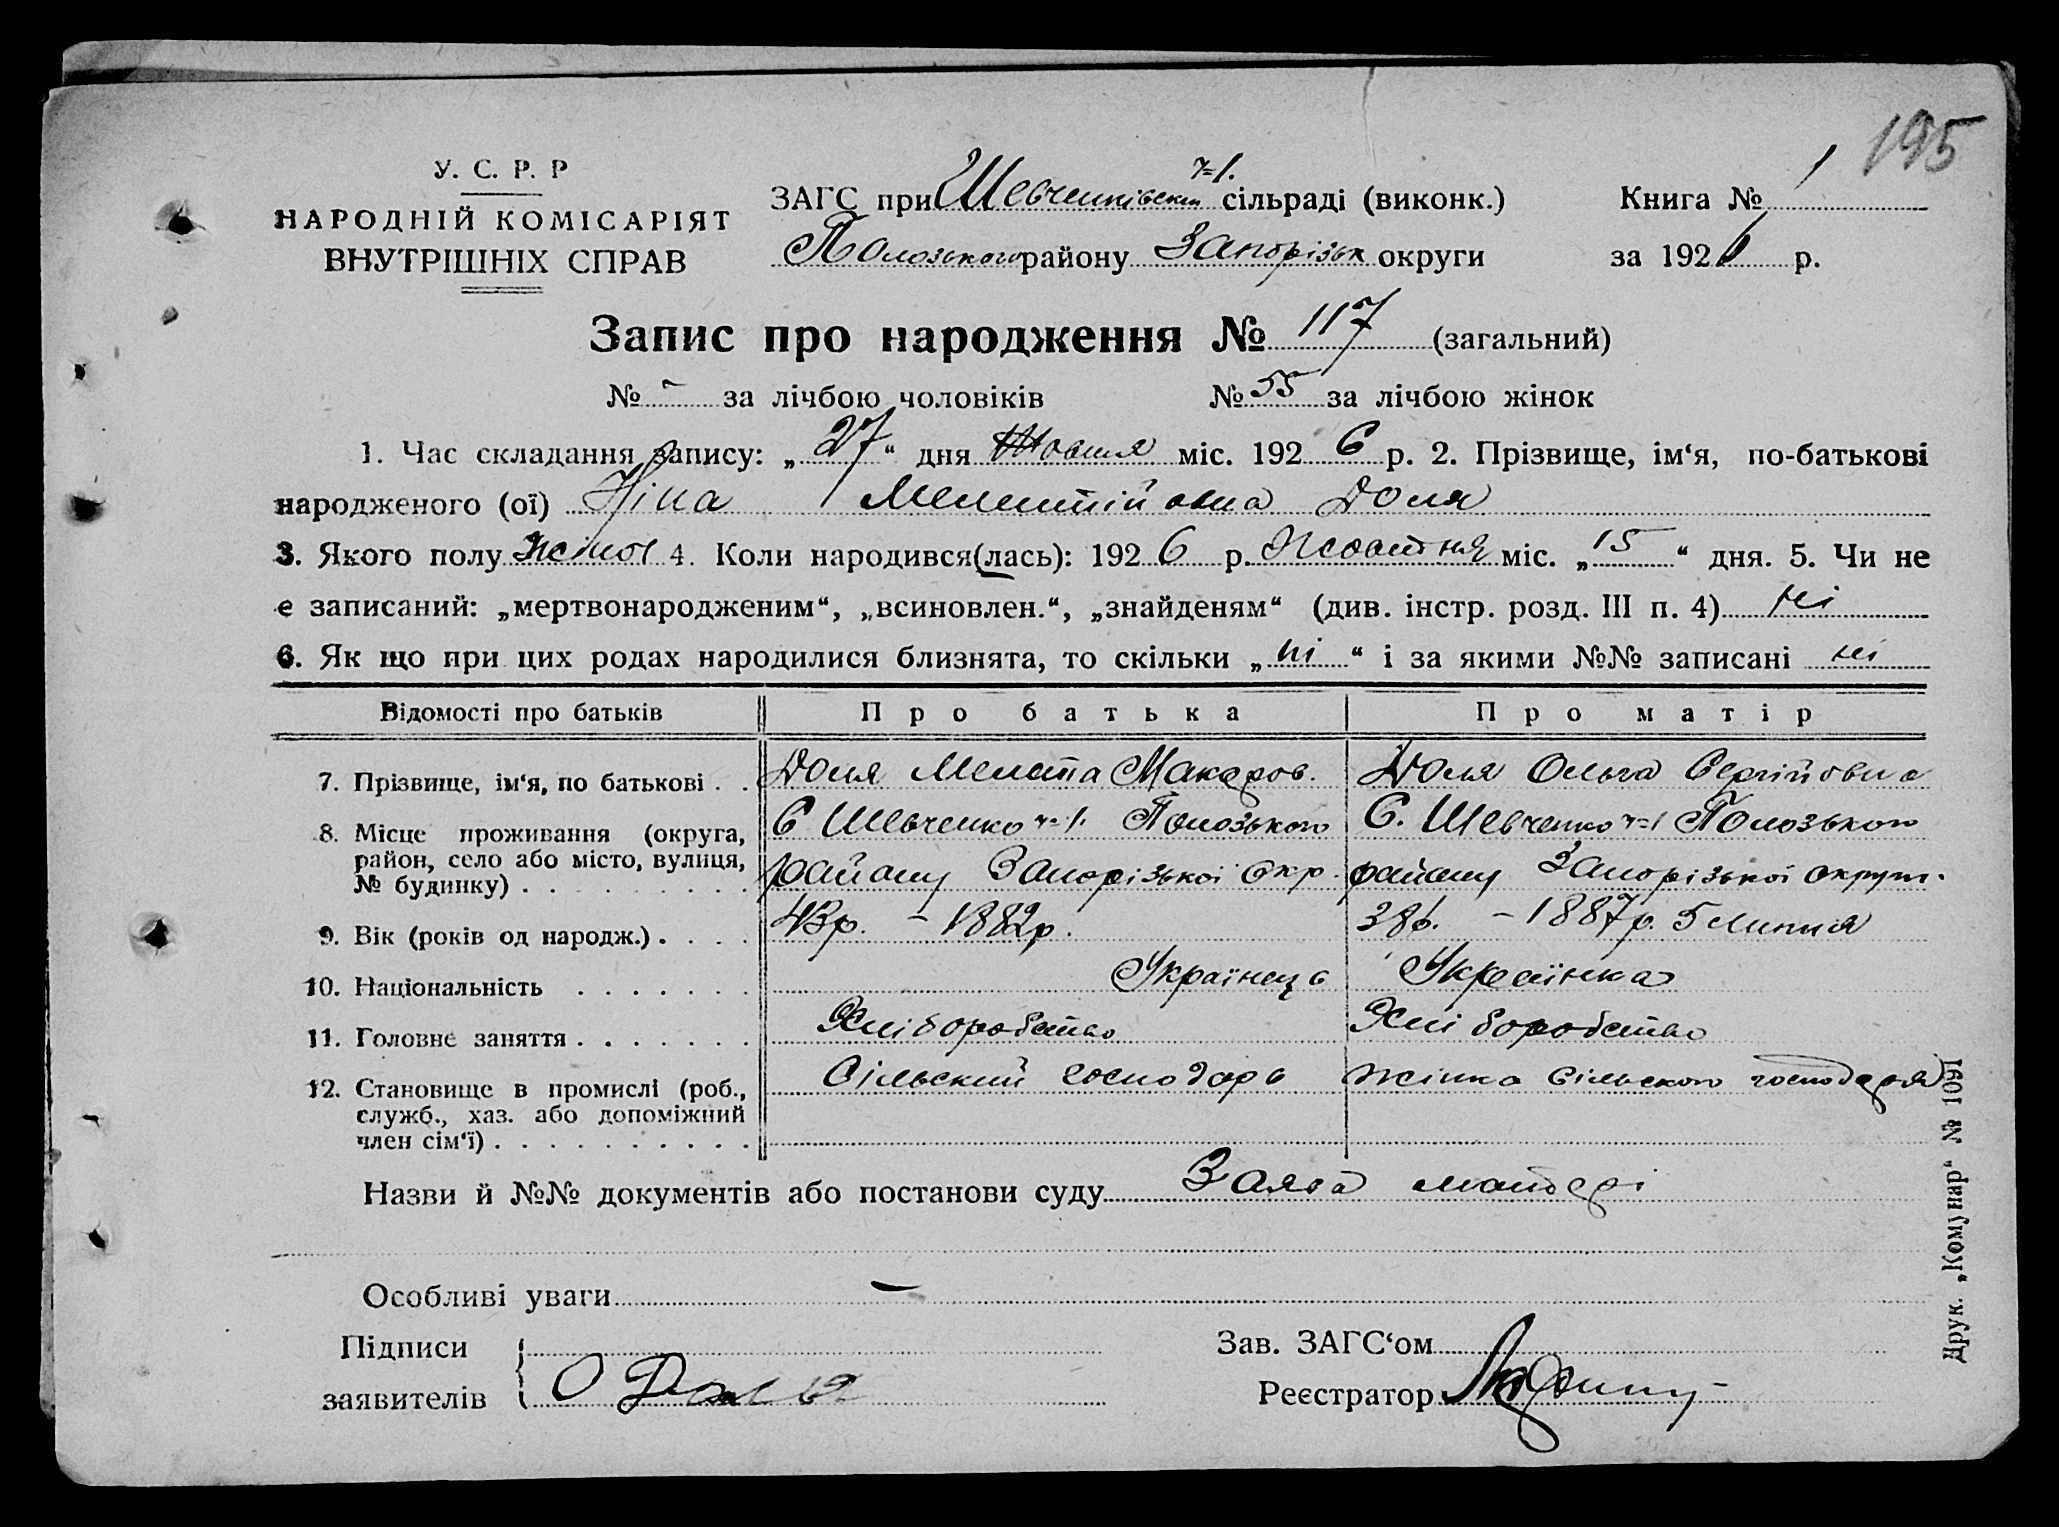 195
У. С. Р. Р
НАРОДНІЙ КОМІСАРІЯТ
ВНУТРІШНІХ СПРАВ
ЗАГС при Шевченківськ ч=1. сільраді (виконк.)
Книга № 1
Полозького району Запорізьк округи
за 1926 р.
Запис про народження № 117 (загальний)
№ - за лічбою чоловіків № 55 за лічбою жінок
1. Час складання запису: „ 27 “ дня Жовтня міс. 1926 р. 2. Прізвище, ім‘я, по-батькові
народженого (ої) Ніна Мелентійовна Доля
3. Якого полу жіноч 4. Коли народився(лась): 1926 р. Жовтня міс. „ 15 “ дня. 5. Чи не
є записаний: „мертвонародженим“, „всиновлен.“, „знайденям“ (див. інстр. розд. III п. 4) ні
6. Як що при цих родах народилися близнята, то скільки „ ні “ і за якими №№ записані ні
Відомості про батьків Про батька Про матір
7. Прізвище, ім‘я, по батькові . . Доля Мелета Макаров. Доля Ольга Сергійовна
8. Місце проживання (округа, С Шевченко ч=1. Полозького С. Шевченко ч=1 Полозького
район, село або місто, вулиця, району Запорізької окр. району Запорізької округи.
№ будинку) . . . . . . . . .
9. Вік (років од народж.) . . . . 43р. - 1882р. 38р. - 1887р. 5 Липня
10. Національність . . . . . . . Українець Українка
11. Головне заняття . . . . . . . Хліборобство Хліборобство
12. Становище в промислі (роб., Сільський господарь жінка сільського господаря
служб., хаз. або допоміжний
член сім‘ї) . . . . . . . . . .
Назви й №№ документів або постанови суду Заява матері
Особливі уваги -
Підписи
Зав. ЗАГС‘ом
заявителів О Доля
Реєстратор
Друк. „Комунар“ № 1091